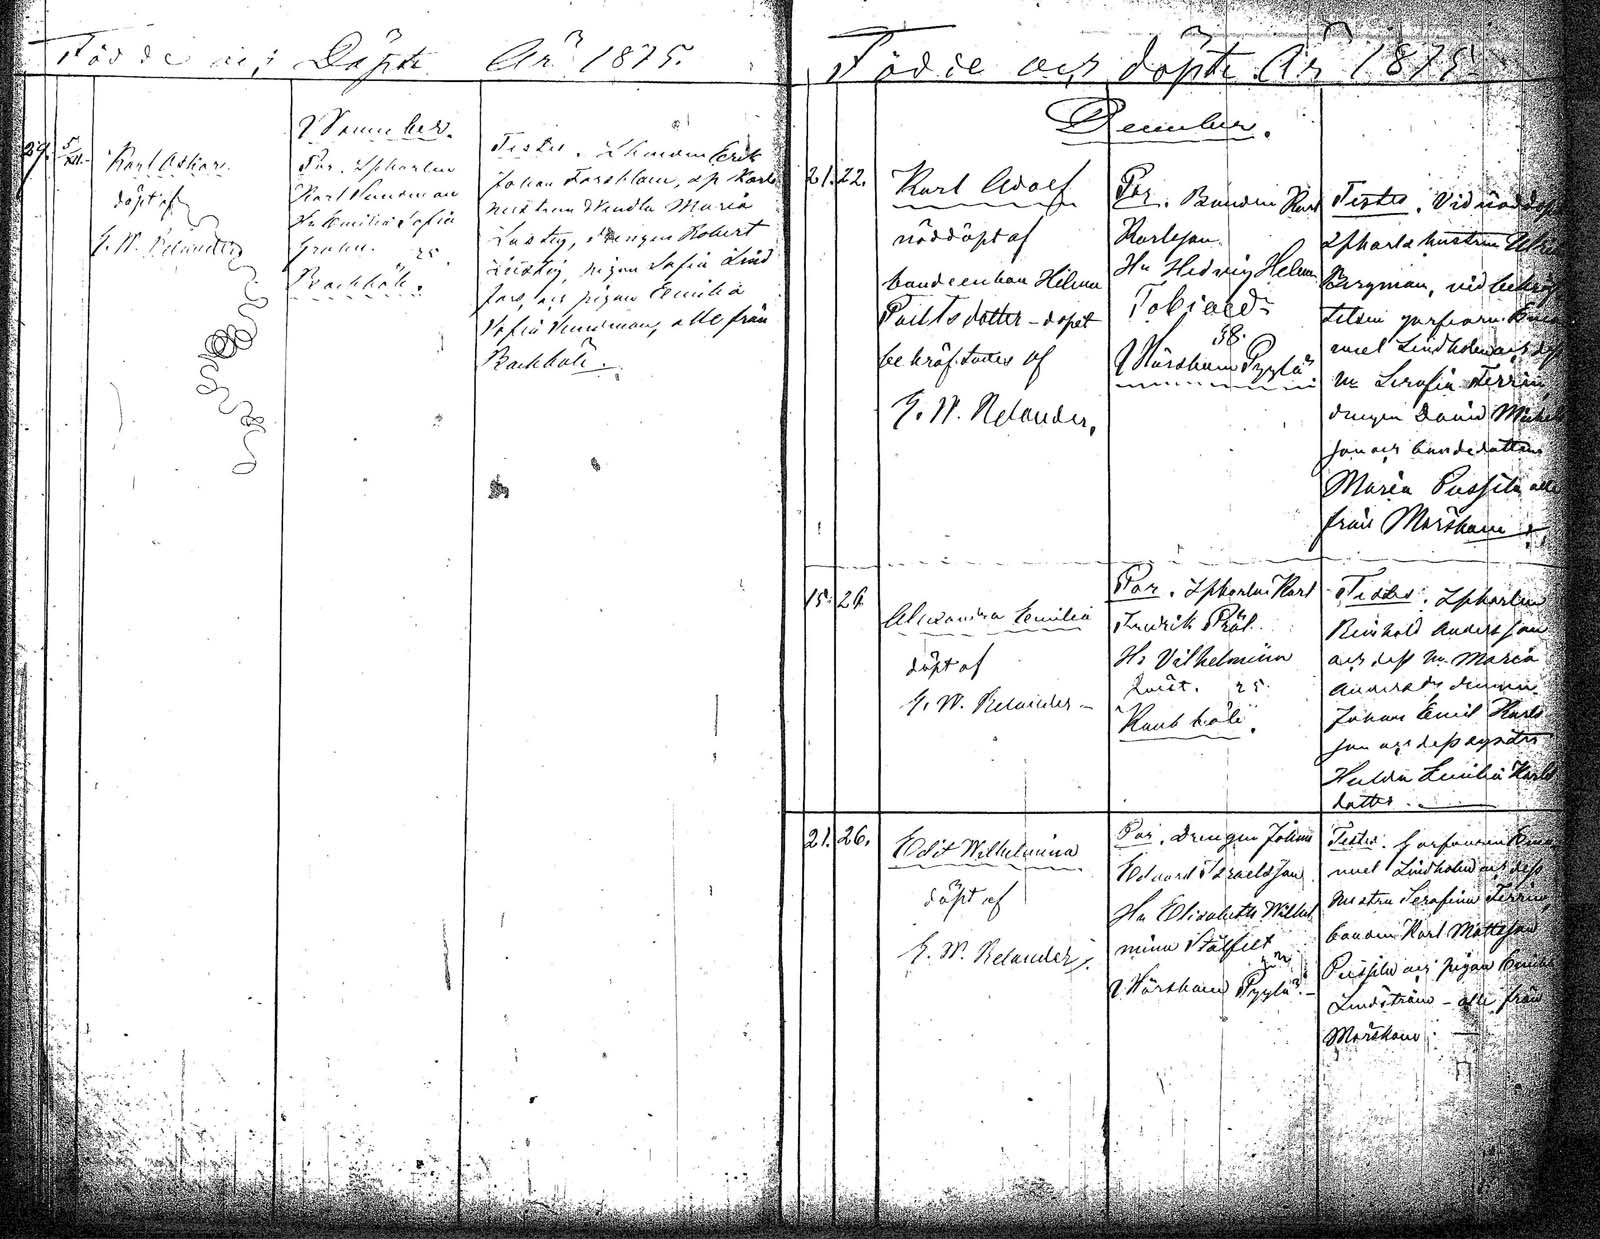 Födde och Döpte År 1875.
November.
29. 5/XII.
Karl Oskar
döpt af
G. W. Relander
För. Spharlen
Karl Sundman
Hu Emilia Sofia
25.
Backböle.
Testes. Erik
Johan Forsblom,
hustrun Wendla Maria
Lustig, drengen Robert
Lustig, pigan Sofia Lind
fors, och pigan Emilia
Sofia Sundman, alle från
Backböle.
Födde och döpte År 1875.
December.
21. 22.
Karl Adolf
nöddöpt af
bondeenkan Helena
dotter – dopet
bekräftades af
G. W. Relander.
För. Bonden Karl
Karlsson
Hu Hedvig Helena
Tobiasd:
38.
Mörskom Pyylä
Testes. Vid nöddop
Spharls hustrun
Bergman, vid bekräf
telsen garfvaren Ema
nuel Lindholm och dess
hu Serafia Ferrin,
drengen David Mickels
son och bondedottren
Maria Pussila alle
från Mörskom
15. 26.
Alexandra Emilia
döpt af
G. W. Relander –
För. Spharlen Karl
Fredrik
Hu Vilhelmina
Qvist. 25.
böle.
Testes. Spharlen
Reinhold Andersson
och dess hu Maria
Andersdr drengen
Johan Emil Karls
son och dess syster
Hulda Emilia Karls
dotter.
21. 26.
Edit Wilhelmina
döpt af
G. W. Relander.
För. Drengen Johan
Edvard Israelsson
Hu Elisabeth Wilhel
mina Stålfelt
Mörskom Pyylä. –
Testes. Garfvaren Ema
nuel Lindholm och dess
hustru Serafina Ferrin,
bonden Karl Mattsson
Pussila och pigan
Lindström – alle från
Mörskom.